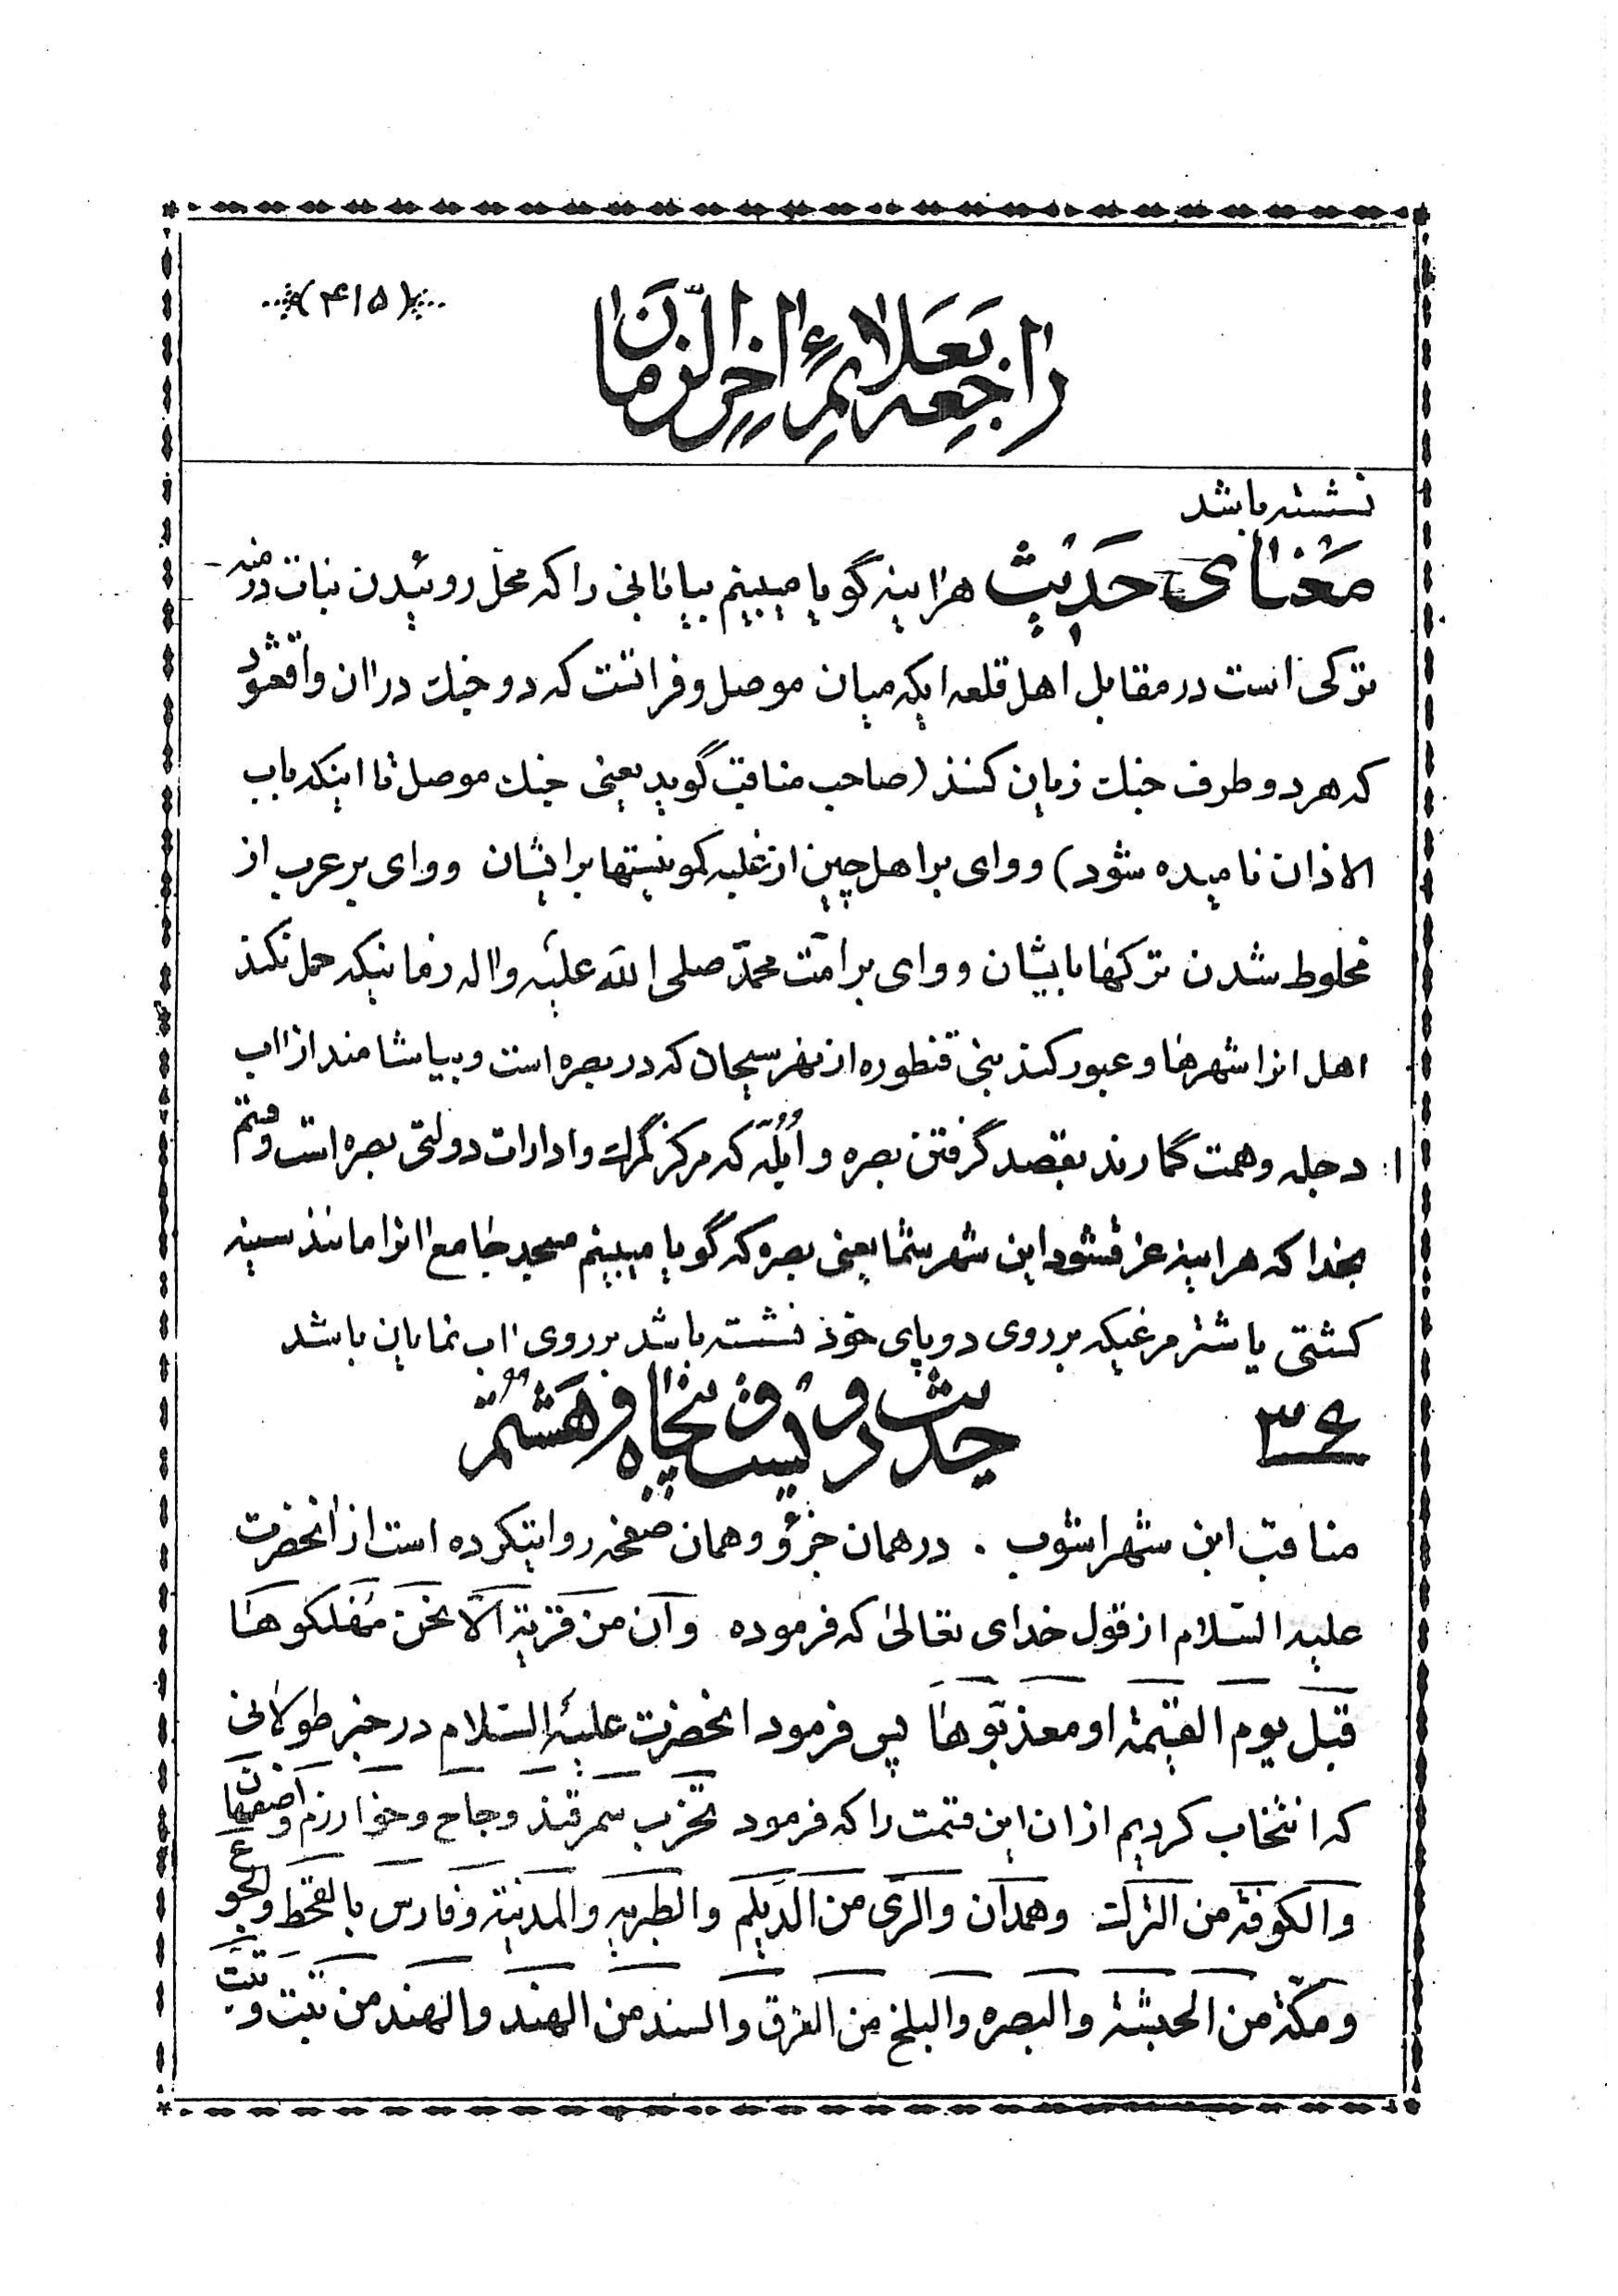 (۴۱۵)
راجعه بعلائم اٰخر الزّمان
نشسته باشد
معنای حدیث هراینه گویا میبینم بیابانی را که محل روئیدن نبات درمنه
ترکی است در مقابل اهل قلعه ایکه میان موصل و فراتست که دو جنك در اٰن واقعشود
که هر دو طرف جنك زیان کنند (صاحب مناقب گوید یعنی جنك موصل تا اینکه باب
الاذان نامیده شود) و وای بر اهل چین از غلبه کمونیستها بر ایشان و وای بر عرب از
مخلوط شدن ترکها بایشان و وای بر امّت محمّد صلی الله علیه و اله زمانیکه حمل نکند
اهل انرا شهرها و عبور کند بنی قنطوره از نهر سیحان که در بصره است و بیاشامند از اٰب
دجله و همت گمارند بقصد گرفتن بصره و اُبُلّه که مرکز گمرك و ادارات دولتی بصره است و قسم
بخدا که هراینه غرقشود این شهر شما یعنی بصره که گویا میبینم مسجد جامع اٰنرا مانند سینه
کشتی یا شتر مرغیکه بر روی دو پای خود نشسته باشد بر روی اٰب نمایان باشد
۳۶ حدیث دویست و پنجاه و هشتم
مناقب ابن شهراشوب . در همان جزؤ و همان صفحه روایتکرده است از انحضرت
علیه السّلام از قول خدای تعالیٰ که فرموده وان من قریة الّا نحن مهلکوها
قبل یوم القیٰمة او معذبوها پس فرمود انحضرت علیه السّلام در خبر طولانی
که انتخاب کردیم از ان این قسمت را که فرمود تخرب سمرقند وجاح وخوارزم واصفهان
والکوفة من الترك وهمدان والری من الدیلم والطبریه والمدینة وفارس بالقحط والجوع
ومکة من الحبشة والبصره والبلخ من الغرق والسند من الهند والهند من تبت وتبت